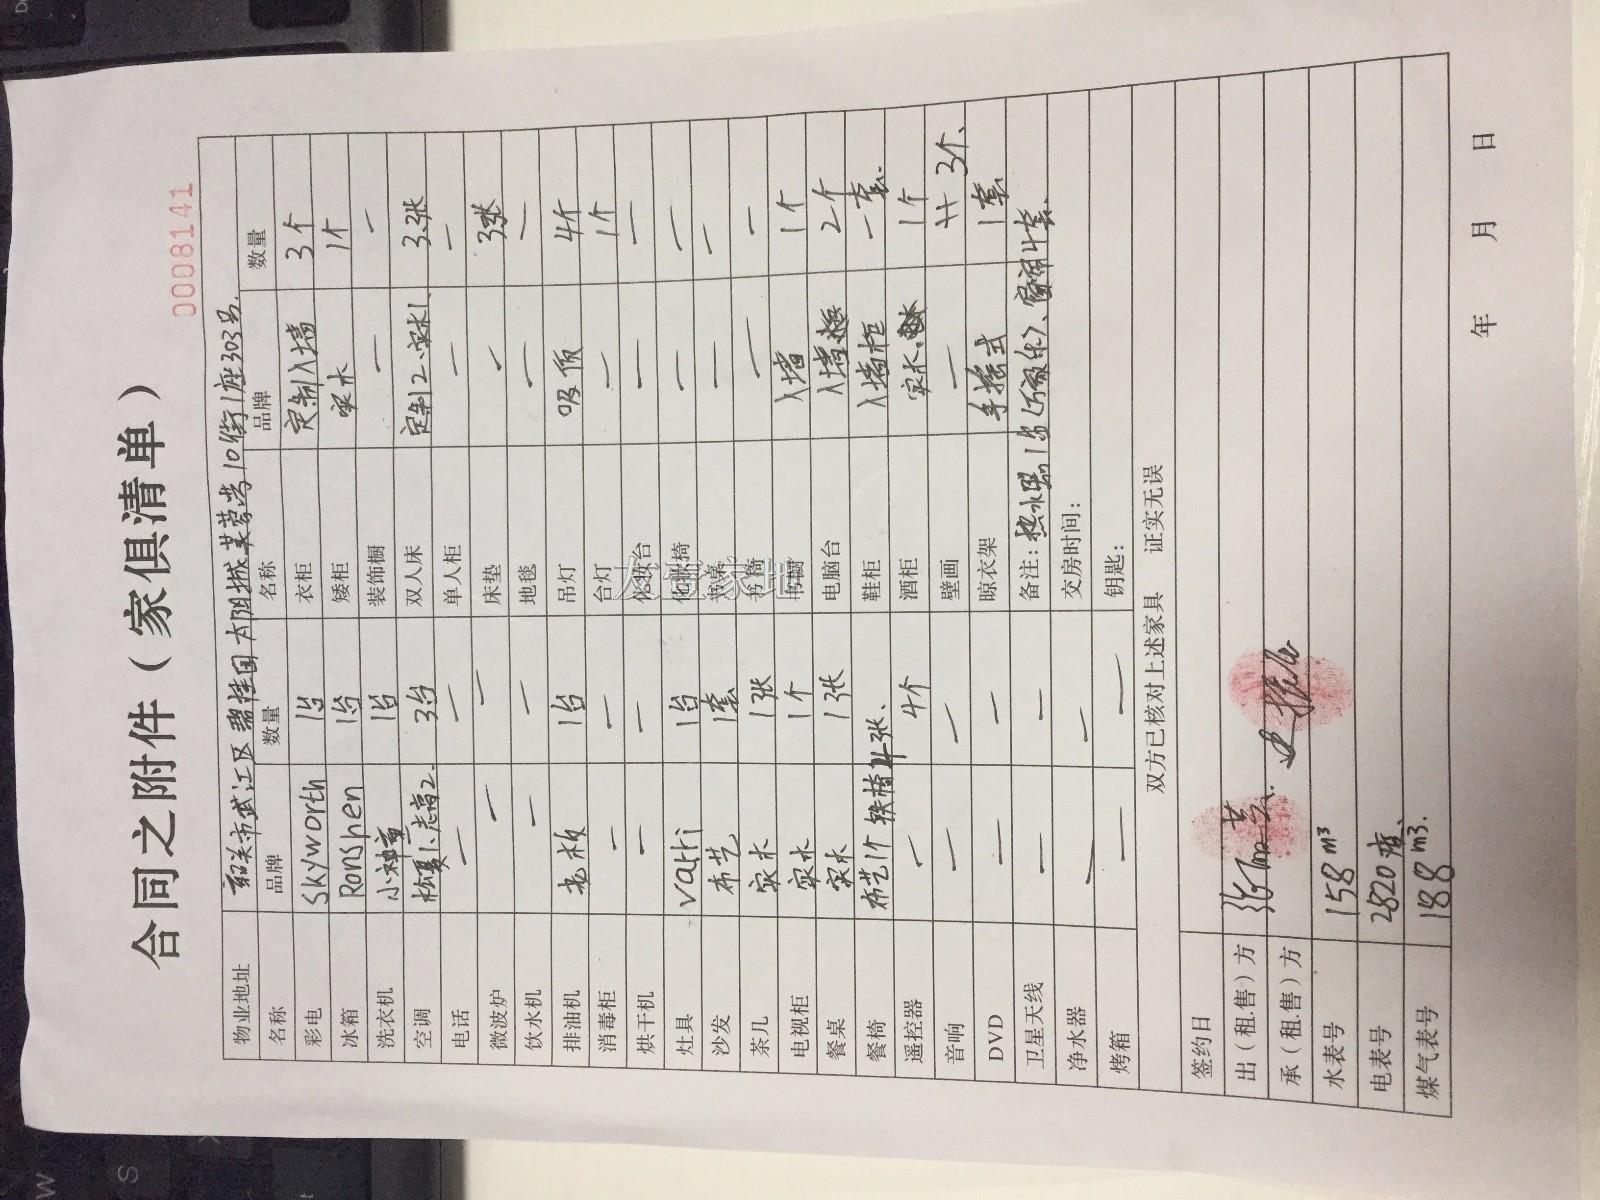 合同之附件（家俱清单）
0008141
物业地址 韶关市武江区碧桂园太阳城芙蓉湾10街1座303号.
名称 品牌 数量 名称 品牌 数量
彩电 Skyworth 1台 衣柜 定制入墙 3个
冰箱 Ronshen 1台 矮柜 实木 1个
洗衣机 小神童 1台 装饰橱 — —
空调 志高2. 3台 双人床 定制2.实木1. 3张
电话 — — 单人柜 — —
微波炉 — — 床垫 — 3张
饮水机 — — 地毯 — —
排油机 老板 1台 吊灯 吸顶 4个
消毒柜 — — 台灯 — 1个
烘干机 — — 化妆台 — —
灶具 Vatti 1台 化妆椅 — —
沙发 布艺 1套 书桌 — —
茶几 实木 1张 书椅 — —
电视柜 实木 1个 书橱 入墙 1个
餐桌 实木 1张 电脑台 入墙 2个
餐椅 布艺1个 铁椅4张、 鞋柜 入墙柜 一套.
遥控器 — 4个 酒柜 实木 1个
音响 — — 壁画 — 3个、
DVD — — 晾衣架 手摇式 1套
卫星天线 — — 备注：热水器1台(万家乐)、窗帘4套、
净水器 — — 交房时间：
烤箱 — — 钥匙：
双方已核对上述家具 证实无误
签约日
出（租.售）方
承（租.售）方
水表号 158 m³
电表号 2820度、
煤气表号 188 m3.
年 月 日